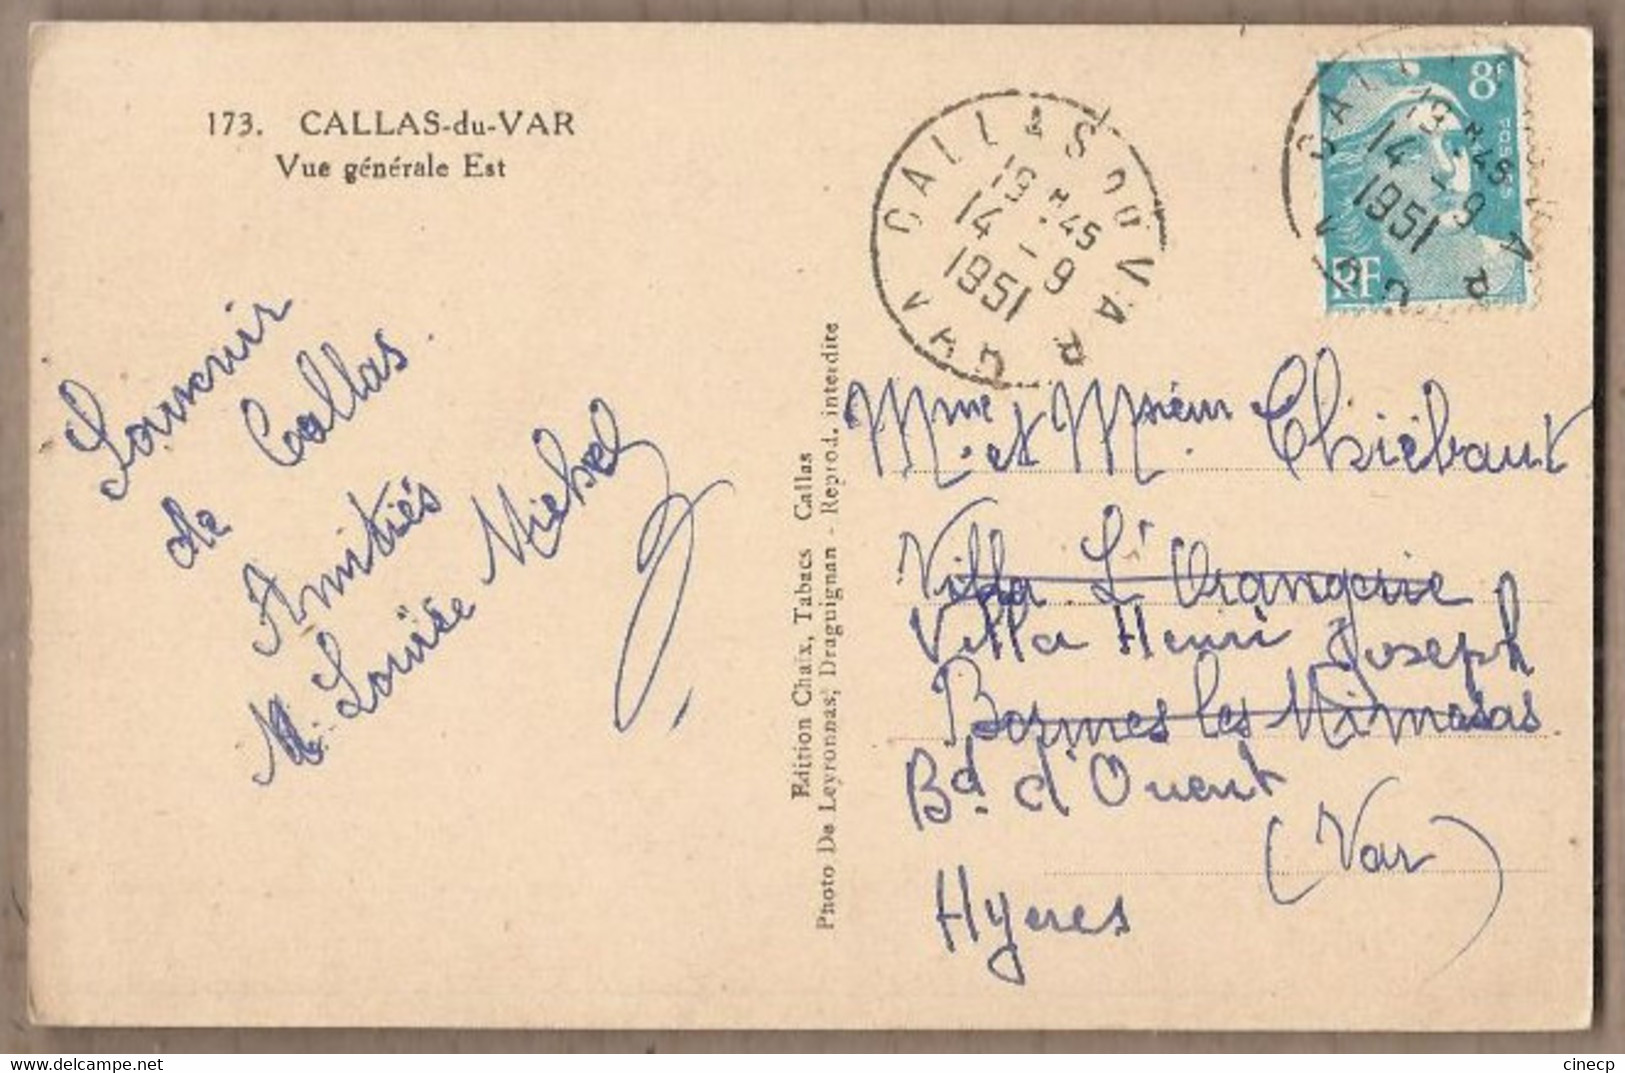 173. CALLAS-du-VAR
Vue générale Est
Souvenir
de Callas
Amitiés
M. Louise Michel
Edition Chaix, Tabacs Callas
Photo De Leyronnas, Draguignan - Reprod. interdite
CALLAS DU VAR
VAR
19 H 45
14 - 9
1951
8F
POSTES
RF
19 H 45
14 - 9
1951
Mme et Mr Thiébaut
Villa L'Orangerie
Villa Henri Joseph
Bormes les Mimosas
Bd. d'Orient
(Var)
Hyeres
cinecp